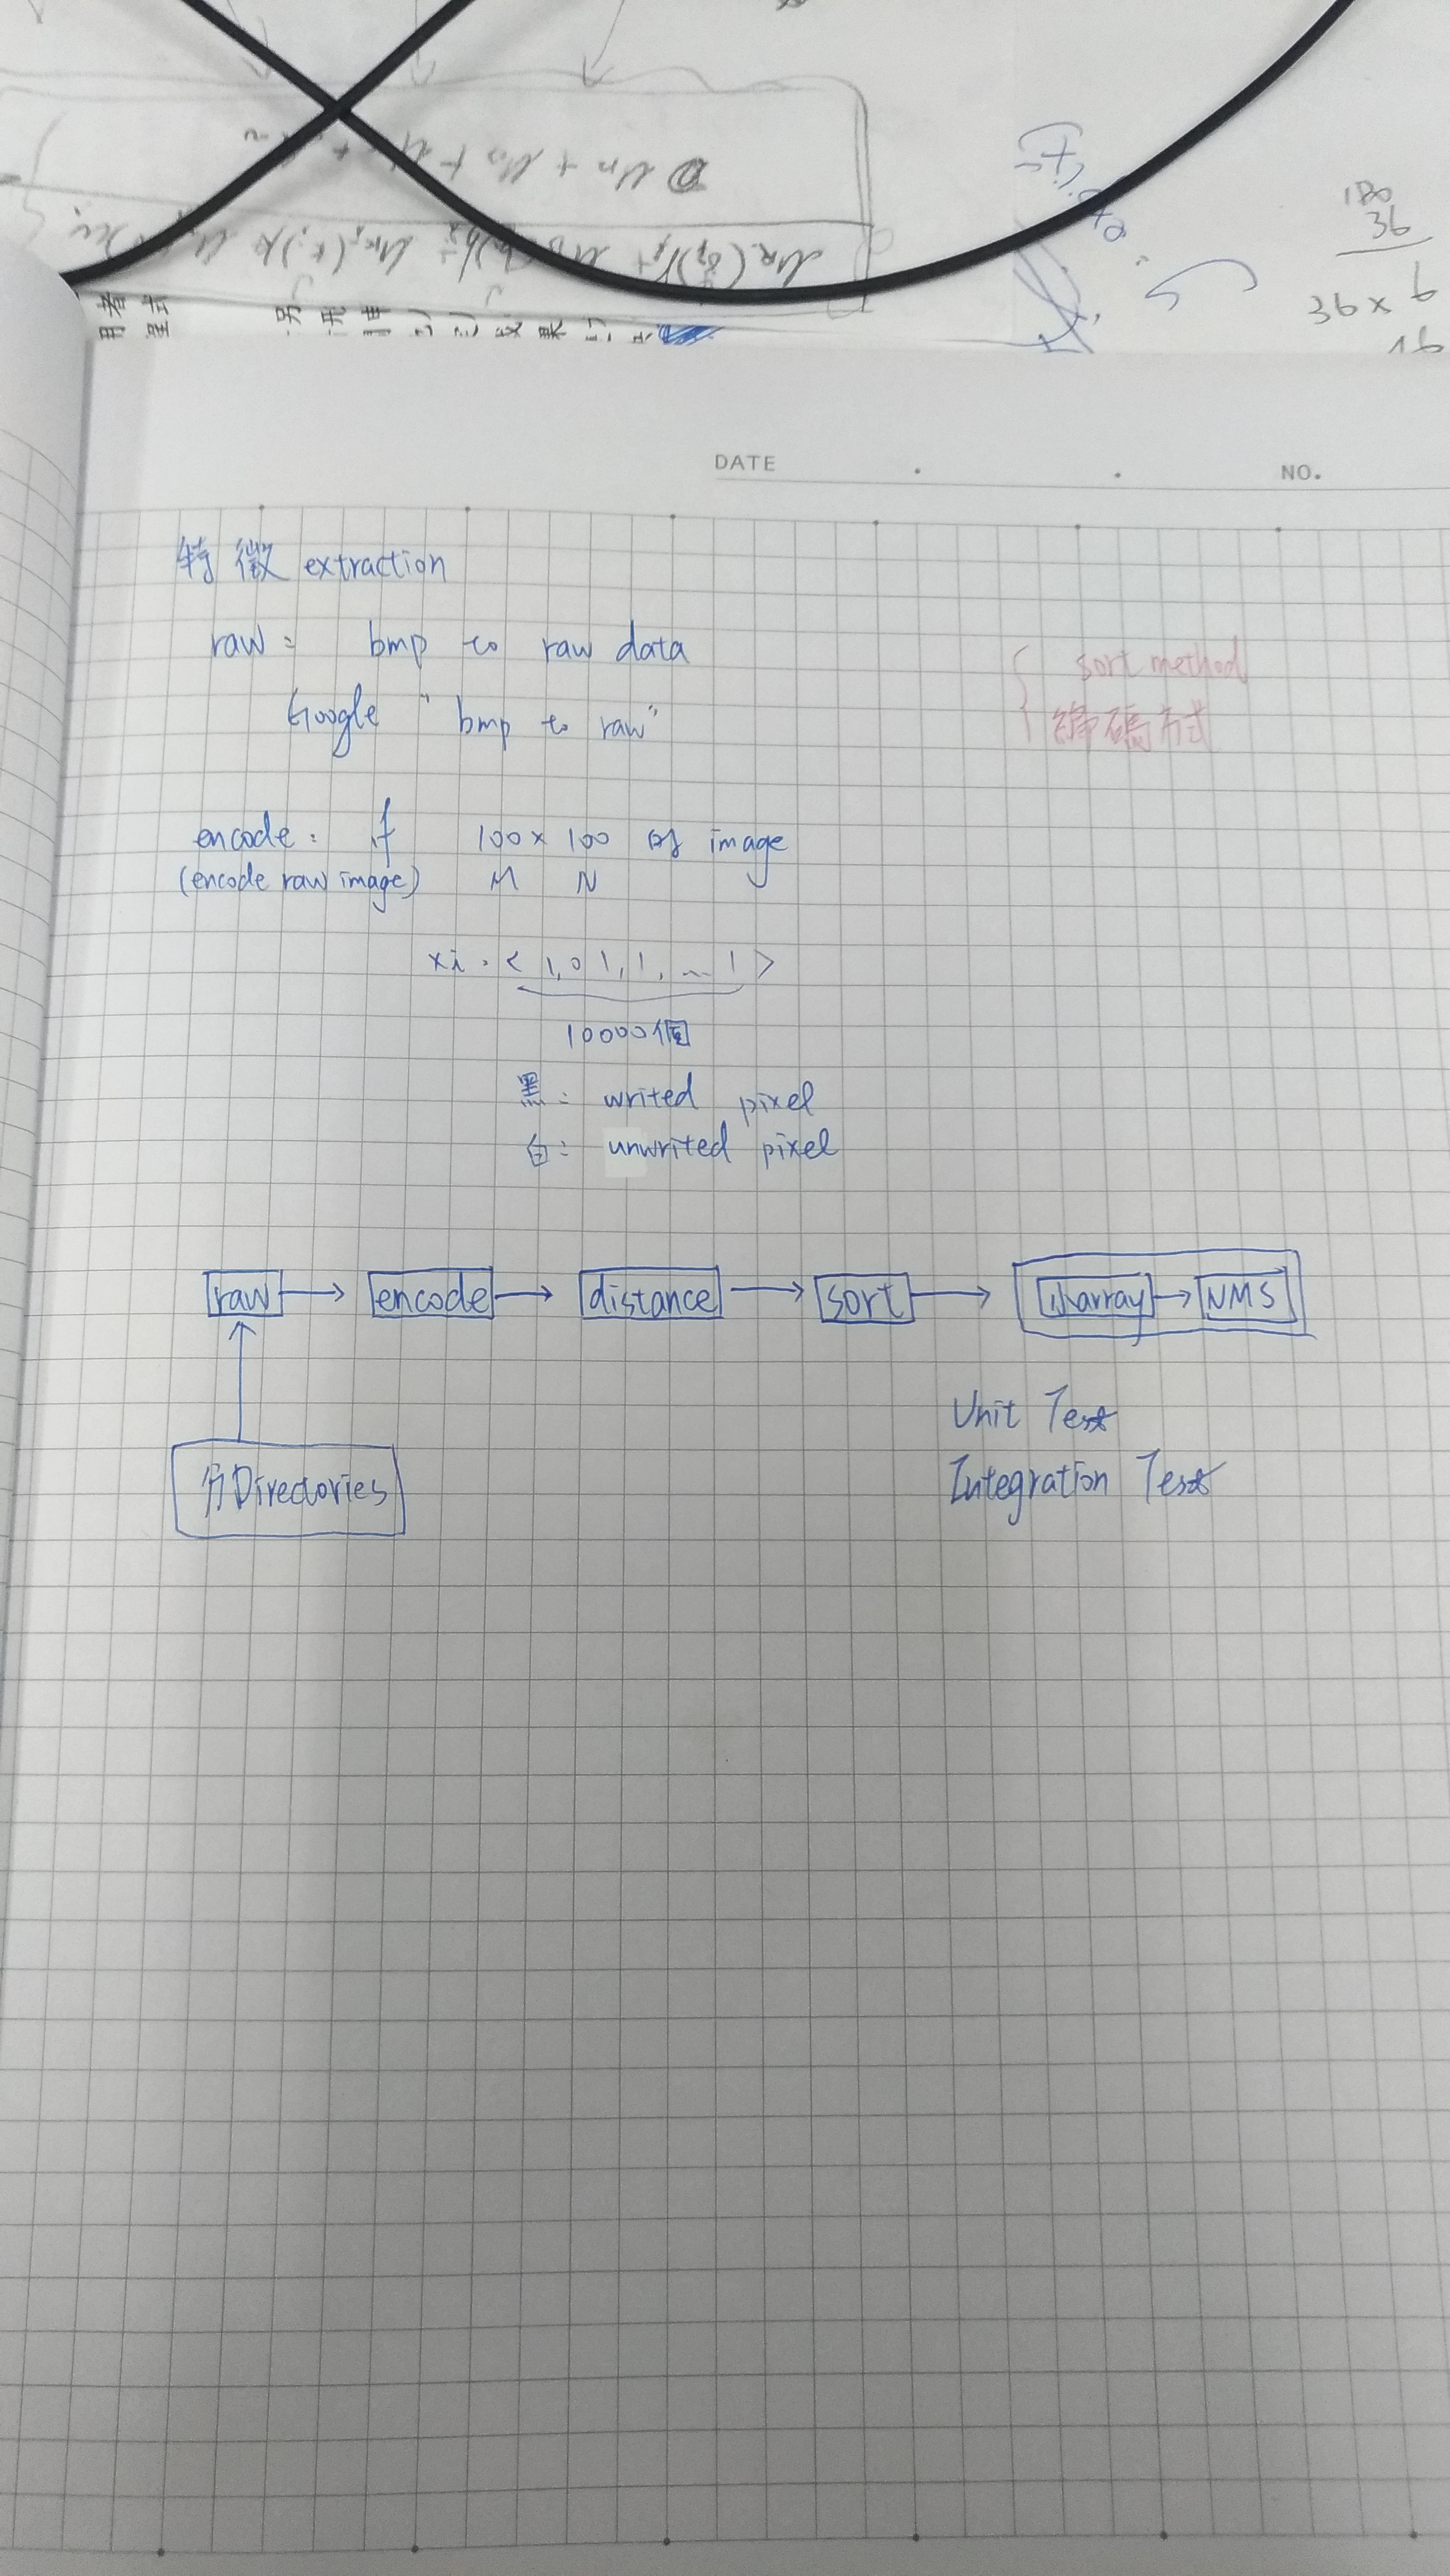 180
36
36 x 6
16
DATE . . NO.
特徵 extraction
raw: bmp to raw data
Google "bmp to raw"
sort method
編碼方式
encode: if 100 x 100 of image
(encode raw image) M N
xi: < 1, 0 1, 1, ... 1 >
10000個
黑: writed pixel
白: unwrited pixel
raw → encode → distance → sort → array → NMS
Unit Test
Integration Test
分Directories